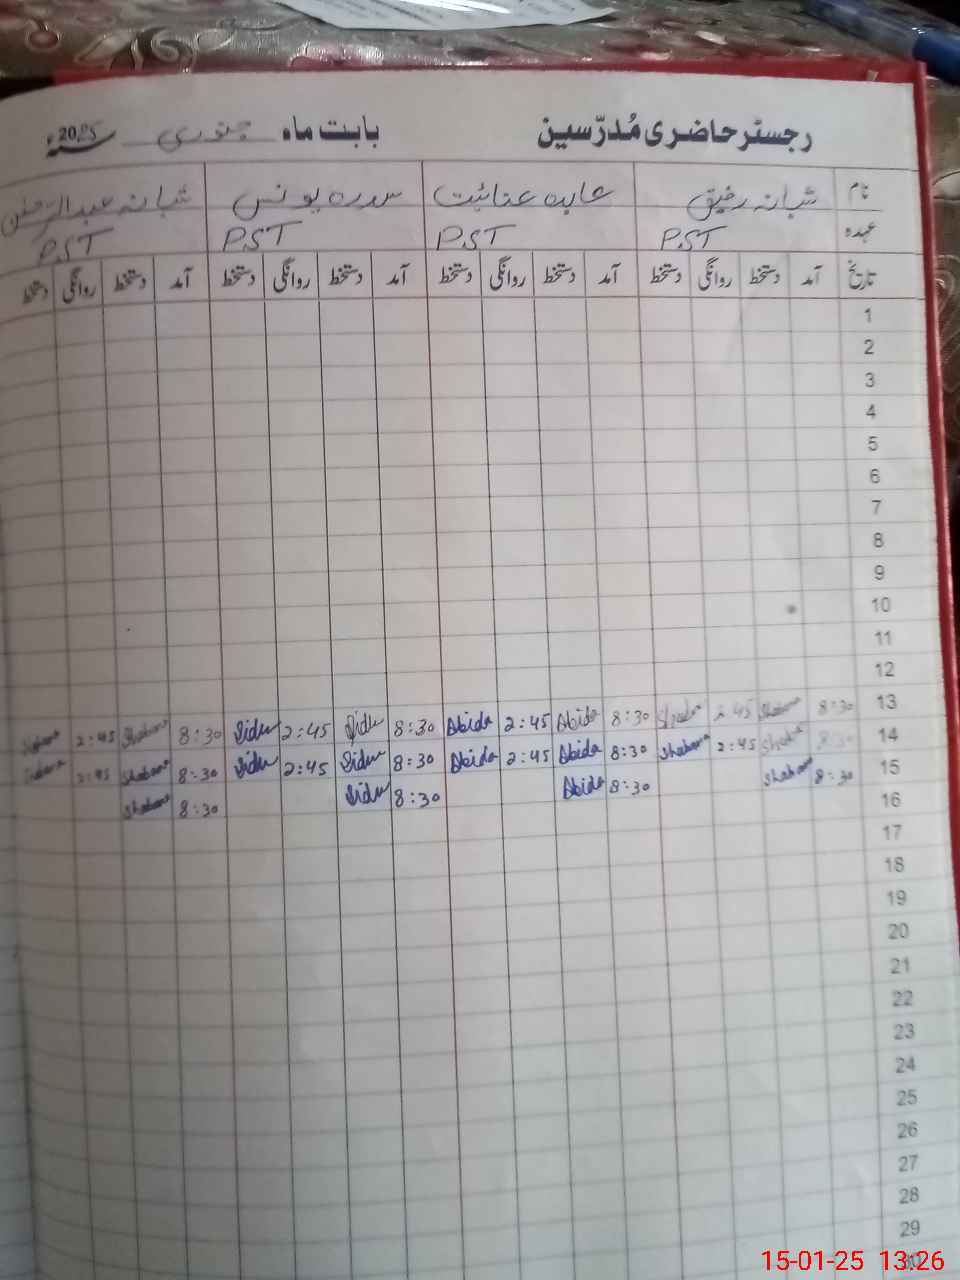 رجسٹر حاضری مُدرّسین بابت ماہ جنوری سنہ 2025
نام شبانہ رفیق عابدہ عنائیت سدرہ یونس شبانہ عبدالرحمٰن
عہدہ P.S.T P.S.T P.S.T P.S.T
تاریخ آمد دستخط روانگی دستخط آمد دستخط روانگی دستخط آمد دستخط روانگی دستخط آمد دستخط روانگی دستخط
1
2
3
4
5
6
7
8
9
10
11
12
13 8:30 Shabana 2:45 Shabana 8:30 Abida 2:45 Abida 8:30 Sidra 2:45 Sidra 8:30 Shabana 2:45 Shabana
14 8:30 Shabana 2:45 Shabana 8:30 Abida 2:45 Abida 8:30 Sidra 2:45 Sidra 8:30 Shabana 2:45 Shabana
15 8:30 Shabana 8:30 Abida 8:30 Sidra 8:30 Shabana
16
17
18
19
20
21
22
23
24
25
26
27
28
29
30
15-01-25 13:26